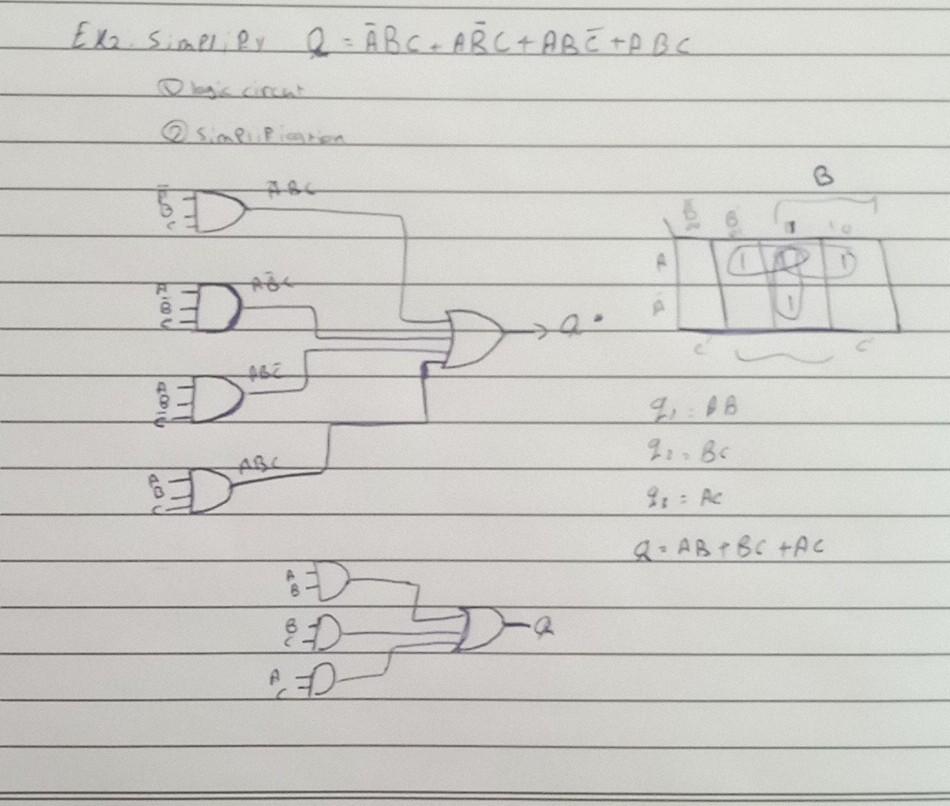 Ex2. Simplify Q = ĀBC + AB̄C + ABC̄ + ABC
① logic circuit
② simplification
ĀBC
B
C
A
B̄
C
AB̄C
A
B
C̄
ABC̄
A
B
C
ABC
Q
B
B̄
B
A
Ā
1 1 1
1
C
q₁ = AB
q₂ = BC
q₃ = AC
Q = AB + BC + AC
A
B
B
C
A
C
Q